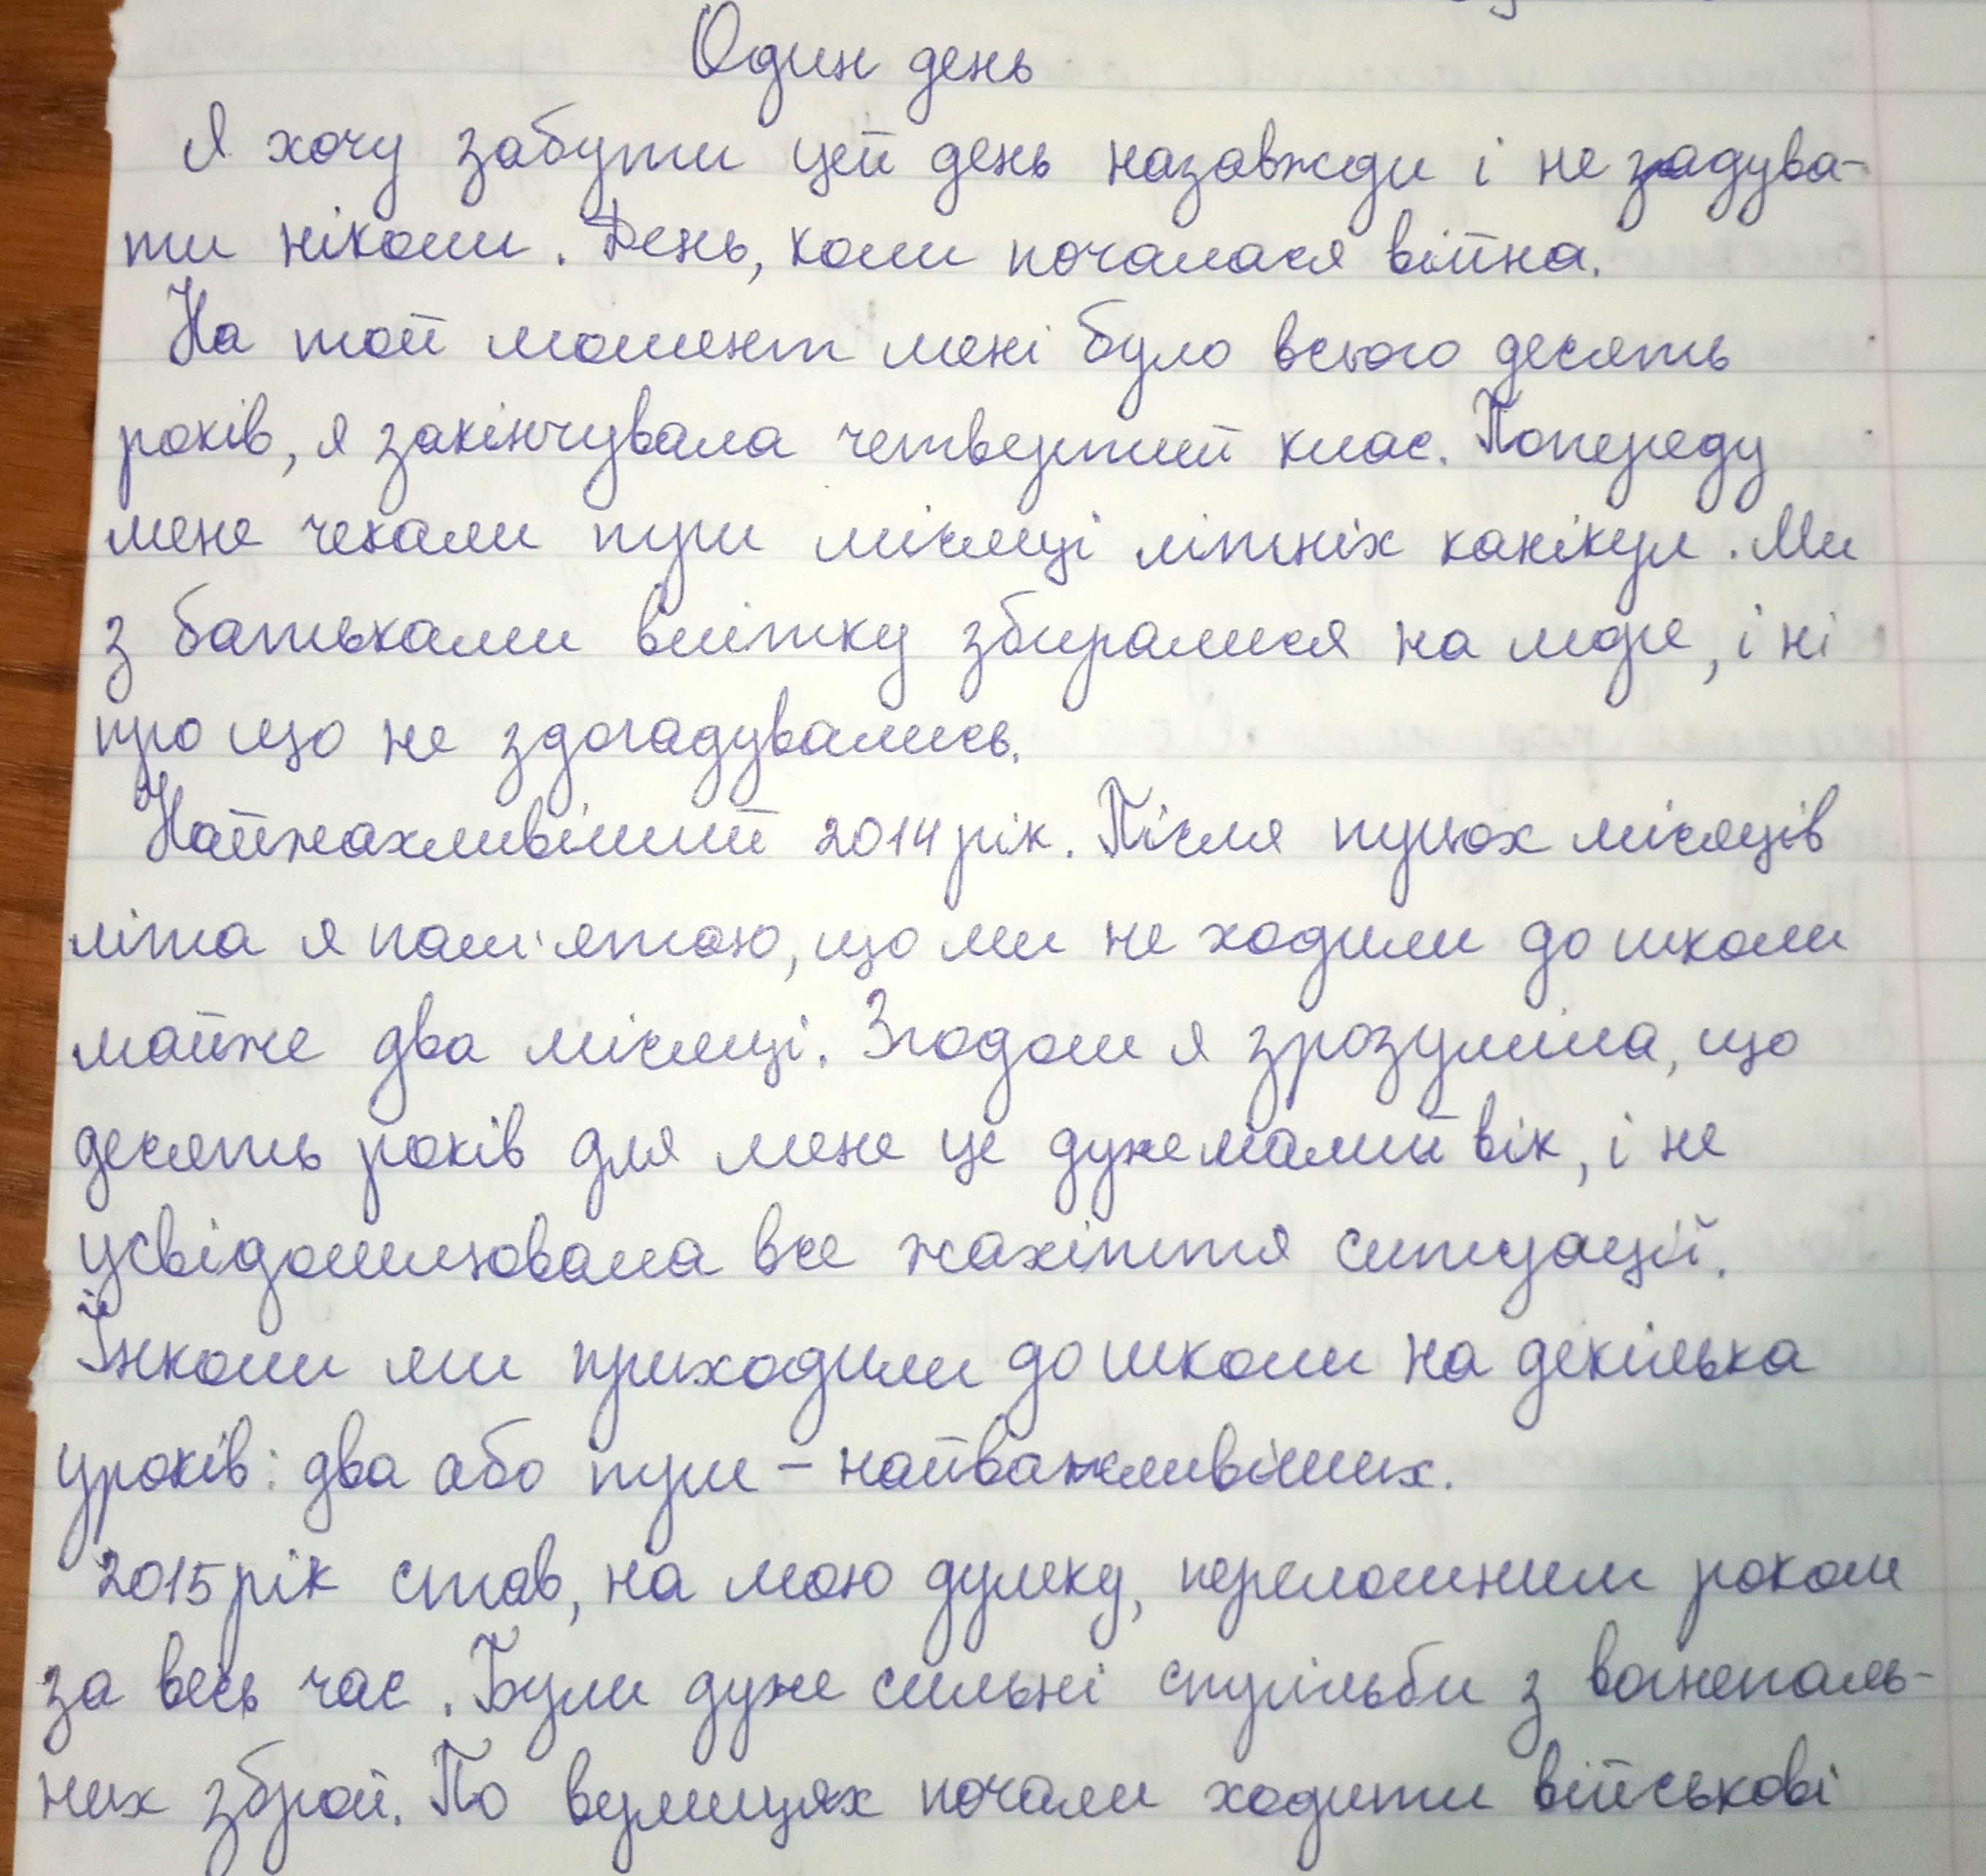 Один день
Я хочу забути цей день назавжди і не згадува-
ти ніколи. День, коли почалася війна.
На той момент мені було всього десять
років, я закінчувала четвертий клас. Попереду
мене чекали три місяці літніх канікул. Ми
з батьками влітку збиралися на море, і ні
про що не здогадувались.
Найжахливіший 2014 рік. Після трьох місяців
літа я пам'ятаю, що ми не ходили до школи
майже два місяці. Згодом я зрозуміла, що
десять років для мене це дуже малий вік, і не
усвідомлювала все жахіття ситуації.
Інколи ми приходили до школи на декілька
уроків: два або три – найважливіших.
2015 рік став, на мою думку, переломним роком
за весь час. Були дуже сильні стрільби з вогнепаль-
них зброй. По вулицях почали ходити військові